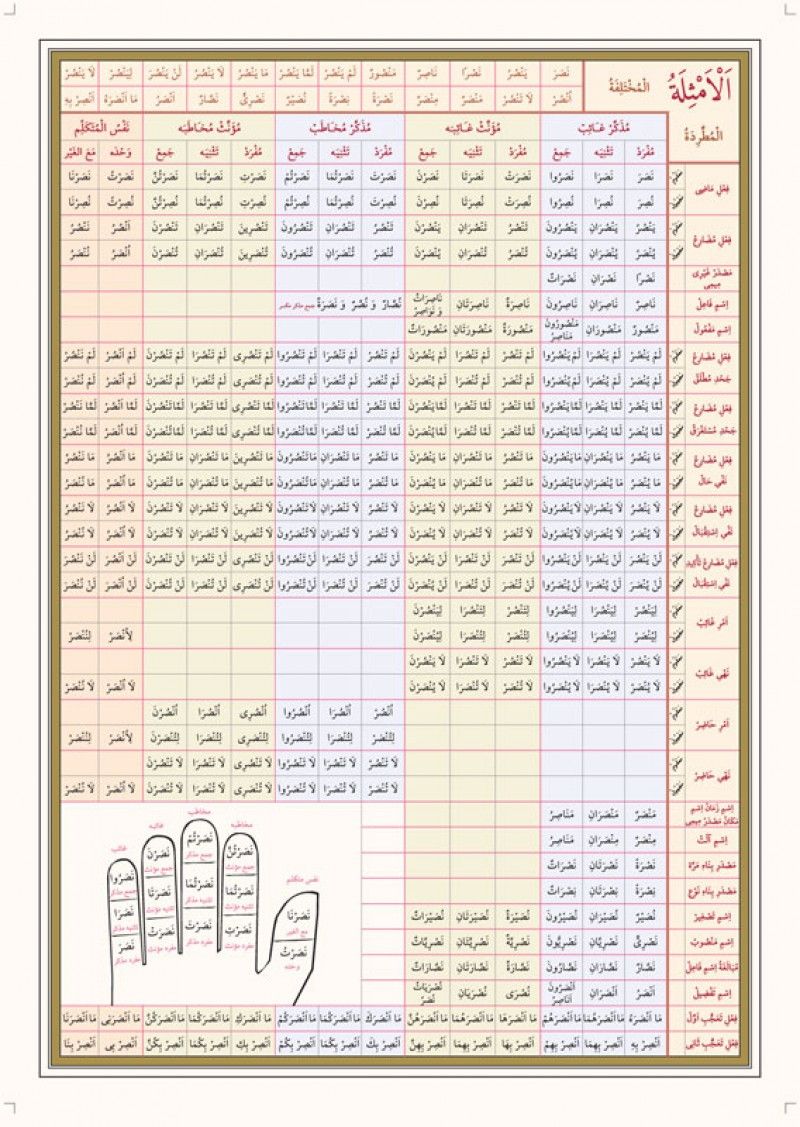 اَلْاَمْثِلَةُ
اَلْمُخْتَلِفَةُ نَصَرَ يَنْصُرُ نَصْرًا نَاصِرٌ مَنْصُورٌ لَمْ يَنْصُرْ لَمَّا يَنْصُرْ مَا يَنْصُرُ لَا يَنْصُرُ لَنْ يَنْصُرَ لِيَنْصُرْ لَا يَنْصُرْ
اُنْصُرْ لَا تَنْصُرْ مَنْصَرٌ مِنْصَرٌ نَصْرَةً نِصْرَةً نُصَيْرٌ نَصْرِىٌّ نَصَّارٌ اَنْصَرُ مَا اَنْصَرَهُ اَنْصِرْ بِهِ
اَلْمُطَّرِدَةُ
مُذَكَّرْ غَائِبْ مُؤَنَّثْ غَائِبَه مُذَكَّرْ مُخَاطَبْ مُؤَنَّثْ مُخَاطَبَه نَفْسُ الْمُتَكَلِّمِ
مُفْرَدْ تَثْنِيَه جَمِعْ مُفْرَدْ تَثْنِيَه جَمِعْ مُفْرَدْ تَثْنِيَه جَمِعْ مُفْرَدْ تَثْنِيَه جَمِعْ وَحْدَه مَعَ الْغَيْر
فِعْلِ مَاضِى
نَصَرَ نَصَرَا نَصَرُوا نَصَرَتْ نَصَرَتَا نَصَرْنَ نَصَرْتَ نَصَرْتُمَا نَصَرْتُمْ نَصَرْتِ نَصَرْتُمَا نَصَرْتُنَّ نَصَرْتُ نَصَرْنَا
نُصِرَ نُصِرَا نُصِرُوا نُصِرَتْ نُصِرَتَا نُصِرْنَ نُصِرْتَ نُصِرْتُمَا نُصِرْتُمْ نُصِرْتِ نُصِرْتُمَا نُصِرْتُنَّ نُصِرْتُ نُصِرْنَا
فِعْلِ مُضَارِعْ
يَنْصُرُ يَنْصُرَانِ يَنْصُرُونَ تَنْصُرُ تَنْصُرَانِ يَنْصُرْنَ تَنْصُرُ تَنْصُرَانِ تَنْصُرُونَ تَنْصُرِينَ تَنْصُرَانِ تَنْصُرْنَ اَنْصُرُ نَنْصُرُ
يُنْصَرُ يُنْصَرَانِ يُنْصَرُونَ تُنْصَرُ تُنْصَرَانِ يُنْصَرْنَ تُنْصَرُ تُنْصَرَانِ تُنْصَرُونَ تُنْصَرِينَ تُنْصَرَانِ تُنْصَرْنَ اُنْصَرُ نُنْصَرُ
مَصْدَرْ غَيْرِى مِيمِى
نَصْرًا نَصْرَانِ نَصْرَاتٌ
اِسْمِ فَاعِلْ
نَاصِرٌ نَاصِرَانِ نَاصِرُونَ نَاصِرَةٌ نَاصِرَتَانِ نَاصِرَاتٌ وَ نَوَاصِرُ نُصَّارٌ وَ نُصَّرٌ وَ نَصَرَةٌ جمع مذكر مكسر
اِسْمِ مَفْعُولْ
مَنْصُورٌ مَنْصُورَانِ مَنْصُورُونَ مَنَاصِرُ مَنْصُورَةٌ مَنْصُورَتَانِ مَنْصُورَاتٌ
فِعْلِ مُضَارِعْ جَحْدِ مُطْلَقْ
لَمْ يَنْصُرْ لَمْ يَنْصُرَا لَمْ يَنْصُرُوا لَمْ تَنْصُرْ لَمْ تَنْصُرَا لَمْ يَنْصُرْنَ لَمْ تَنْصُرْ لَمْ تَنْصُرَا لَمْ تَنْصُرُوا لَمْ تَنْصُرِى لَمْ تَنْصُرَا لَمْ تَنْصُرْنَ لَمْ اَنْصُرْ لَمْ نَنْصُرْ
لَمْ يُنْصَرْ لَمْ يُنْصَرَا لَمْ يُنْصَرُوا لَمْ تُنْصَرْ لَمْ تُنْصَرَا لَمْ يُنْصَرْنَ لَمْ تُنْصَرْ لَمْ تُنْصَرَا لَمْ تُنْصَرُوا لَمْ تُنْصَرِى لَمْ تُنْصَرَا لَمْ تُنْصَرْنَ لَمْ اُنْصَرْ لَمْ نُنْصَرْ
فِعْلِ مُضَارِعْ جَحْدِ مُسْتَغْرَقْ
لَمَّا يَنْصُرْ لَمَّا يَنْصُرَا لَمَّا يَنْصُرُوا لَمَّا تَنْصُرْ لَمَّا تَنْصُرَا لَمَّا يَنْصُرْنَ لَمَّا تَنْصُرْ لَمَّا تَنْصُرَا لَمَّا تَنْصُرُوا لَمَّا تَنْصُرِى لَمَّا تَنْصُرَا لَمَّا تَنْصُرْنَ لَمَّا اَنْصُرْ لَمَّا نَنْصُرْ
لَمَّا يُنْصَرْ لَمَّا يُنْصَرَا لَمَّا يُنْصَرُوا لَمَّا تُنْصَرْ لَمَّا تُنْصَرَا لَمَّا يُنْصَرْنَ لَمَّا تُنْصَرْ لَمَّا تُنْصَرَا لَمَّا تُنْصَرُوا لَمَّا تُنْصَرِى لَمَّا تُنْصَرَا لَمَّا تُنْصَرْنَ لَمَّا اُنْصَرْ لَمَّا نُنْصَرْ
فِعْلِ مُضَارِعْ نَفْىِ حَالْ
مَا يَنْصُرُ مَا يَنْصُرَانِ مَا يَنْصُرُونَ مَا تَنْصُرُ مَا تَنْصُرَانِ مَا يَنْصُرْنَ مَا تَنْصُرُ مَا تَنْصُرَانِ مَا تَنْصُرُونَ مَا تَنْصُرِينَ مَا تَنْصُرَانِ مَا تَنْصُرْنَ مَا اَنْصُرُ مَا نَنْصُرُ
مَا يُنْصَرُ مَا يُنْصَرَانِ مَا يُنْصَرُونَ مَا تُنْصَرُ مَا تُنْصَرَانِ مَا يُنْصَرْنَ مَا تُنْصَرُ مَا تُنْصَرَانِ مَا تُنْصَرُونَ مَا تُنْصَرِينَ مَا تُنْصَرَانِ مَا تُنْصَرْنَ مَا اُنْصَرُ مَا نُنْصَرُ
فِعْلِ مُضَارِعْ نَفْىِ اِسْتِقْبَالْ
لَا يَنْصُرُ لَا يَنْصُرَانِ لَا يَنْصُرُونَ لَا تَنْصُرُ لَا تَنْصُرَانِ لَا يَنْصُرْنَ لَا تَنْصُرُ لَا تَنْصُرَانِ لَا تَنْصُرُونَ لَا تَنْصُرِينَ لَا تَنْصُرَانِ لَا تَنْصُرْنَ لَا اَنْصُرُ لَا نَنْصُرُ
لَا يُنْصَرُ لَا يُنْصَرَانِ لَا يُنْصَرُونَ لَا تُنْصَرُ لَا تُنْصَرَانِ لَا يُنْصَرْنَ لَا تُنْصَرُ لَا تُنْصَرَانِ لَا تُنْصَرُونَ لَا تُنْصَرِينَ لَا تُنْصَرَانِ لَا تُنْصَرْنَ لَا اُنْصَرُ لَا نُنْصَرُ
فِعْلِ مُضَارِعْ تَأْكِيدِ نَفْىِ اِسْتِقْبَالْ
لَنْ يَنْصُرَ لَنْ يَنْصُرَا لَنْ يَنْصُرُوا لَنْ تَنْصُرَ لَنْ تَنْصُرَا لَنْ يَنْصُرْنَ لَنْ تَنْصُرَ لَنْ تَنْصُرَا لَنْ تَنْصُرُوا لَنْ تَنْصُرِى لَنْ تَنْصُرَا لَنْ تَنْصُرْنَ لَنْ اَنْصُرَ لَنْ نَنْصُرَ
لَنْ يُنْصَرَ لَنْ يُنْصَرَا لَنْ يُنْصَرُوا لَنْ تُنْصَرَ لَنْ تُنْصَرَا لَنْ يُنْصَرْنَ لَنْ تُنْصَرَ لَنْ تُنْصَرَا لَنْ تُنْصَرُوا لَنْ تُنْصَرِى لَنْ تُنْصَرَا لَنْ تُنْصَرْنَ لَنْ اُنْصَرَ لَنْ نُنْصَرَ
اَمْرِ غَائِبْ
لِيَنْصُرْ لِيَنْصُرَا لِيَنْصُرُوا لِتَنْصُرْ لِتَنْصُرَا لِيَنْصُرْنَ
لِيُنْصَرْ لِيُنْصَرَا لِيُنْصَرُوا لِتُنْصَرْ لِتُنْصَرَا لِيُنْصَرْنَ لِاُنْصَرْ لِنُنْصَرْ
نَهْىِ غَائِبْ
لَا يَنْصُرْ لَا يَنْصُرَا لَا يَنْصُرُوا لَا تَنْصُرْ لَا تَنْصُرَا لَا يَنْصُرْنَ
لَا يُنْصَرْ لَا يُنْصَرَا لَا يُنْصَرُوا لَا تُنْصَرْ لَا تُنْصَرَا لَا يُنْصَرْنَ لَا اُنْصَرْ لَا نُنْصَرْ
اَمْرِ حَاضِرْ
اُنْصُرْ اُنْصُرَا اُنْصُرُوا اُنْصُرِى اُنْصُرَا اُنْصُرْنَ
لِتُنْصَرْ لِتُنْصَرَا لِتُنْصَرُوا لِتُنْصَرِى لِتُنْصَرَا لِتُنْصَرْنَ لِاُنْصَرْ لِنُنْصَرْ
نَهْىِ حَاضِرْ
لَا تَنْصُرْ لَا تَنْصُرَا لَا تَنْصُرُوا لَا تَنْصُرِى لَا تَنْصُرَا لَا تَنْصُرْنَ
لَا تُنْصَرْ لَا تُنْصَرَا لَا تُنْصَرُوا لَا تُنْصَرِى لَا تُنْصَرَا لَا تُنْصَرْنَ لَا اُنْصَرْ لَا نُنْصَرْ
اِسْمِ زَمَانْ اِسْمِ مَكَانْ مَصْدَرْ مِيمِى
مَنْصَرٌ مَنْصَرَانِ مَنَاصِرُ
اِسْمِ آلَتْ
مِنْصَرٌ مِنْصَرَانِ مَنَاصِرُ
مَصْدَرْ بِنَاءِ مَرَّه
نَصْرَةً نَصْرَتَانِ نَصْرَاتٌ
مَصْدَرْ بِنَاءِ نَوْع
نِصْرَةً نِصْرَتَانِ نِصْرَاتٌ
اِسْمِ تَصْغِيرْ
نُصَيْرٌ نُصَيْرَانِ نُصَيْرُونَ نُصَيْرَةٌ نُصَيْرَتَانِ نُصَيْرَاتٌ
اِسْمِ مَنْسُوبْ
نَصْرِىٌّ نَصْرِيَّانِ نَصْرِيُّونَ نَصْرِيَّةٌ نَصْرِيَّتَانِ نَصْرِيَّاتٌ
مُبَالَغَةِ اِسْمِ فَاعِلْ
نَصَّارٌ نَصَّارَانِ نَصَّارُونَ نَصَّارَةٌ نَصَّارَتَانِ نَصَّارَاتٌ
اِسْمِ تَفْضِيلْ
اَنْصَرُ اَنْصَرَانِ اَنْصَرُونَ اَنَاصِرُ نُصْرَى نُصْرَيَانِ نُصْرَيَاتٌ نُصَرٌ
فِعْلِ تَعَجُّبِ اَوَّلْ
مَا اَنْصَرَهُ مَا اَنْصَرَهُمَا مَا اَنْصَرَهُمْ مَا اَنْصَرَهَا مَا اَنْصَرَهُمَا مَا اَنْصَرَهُنَّ مَا اَنْصَرَكَ مَا اَنْصَرَكُمَا مَا اَنْصَرَكُمْ مَا اَنْصَرَكِ مَا اَنْصَرَكُمَا مَا اَنْصَرَكُنَّ مَا اَنْصَرَنِى مَا اَنْصَرَنَا
فِعْلِ تَعَجُّبِ ثَانِى
اَنْصِرْ بِهِ اَنْصِرْ بِهِمَا اَنْصِرْ بِهِمْ اَنْصِرْ بِهَا اَنْصِرْ بِهِمَا اَنْصِرْ بِهِنَّ اَنْصِرْ بِكَ اَنْصِرْ بِكُمَا اَنْصِرْ بِكُمْ اَنْصِرْ بِكِ اَنْصِرْ بِكُمَا اَنْصِرْ بِكُنَّ اَنْصِرْ بِى اَنْصِرْ بِنَا
نفس متكلم
نَصَرْنَا
مع الغير
نَصَرْتُ
وحده
مخاطبه
نَصَرْتُنَّ
جمع مؤنث
نَصَرْتُمَا
تثنيه مؤنث
نَصَرْتِ
مفرد مؤنث
مخاطب
نَصَرْتُمْ
جمع مذكر
نَصَرْتُمَا
تثنيه مذكر
نَصَرْتَ
مفرد مذكر
غائبه
نَصَرْنَ
جمع مؤنث
نَصَرَتَا
تثنيه مؤنث
نَصَرَتْ
مفرد مؤنث
غائب
نَصَرُوا
جمع مذكر
نَصَرَا
تثنيه مذكر
نَصَرَ
مفرد مذكر